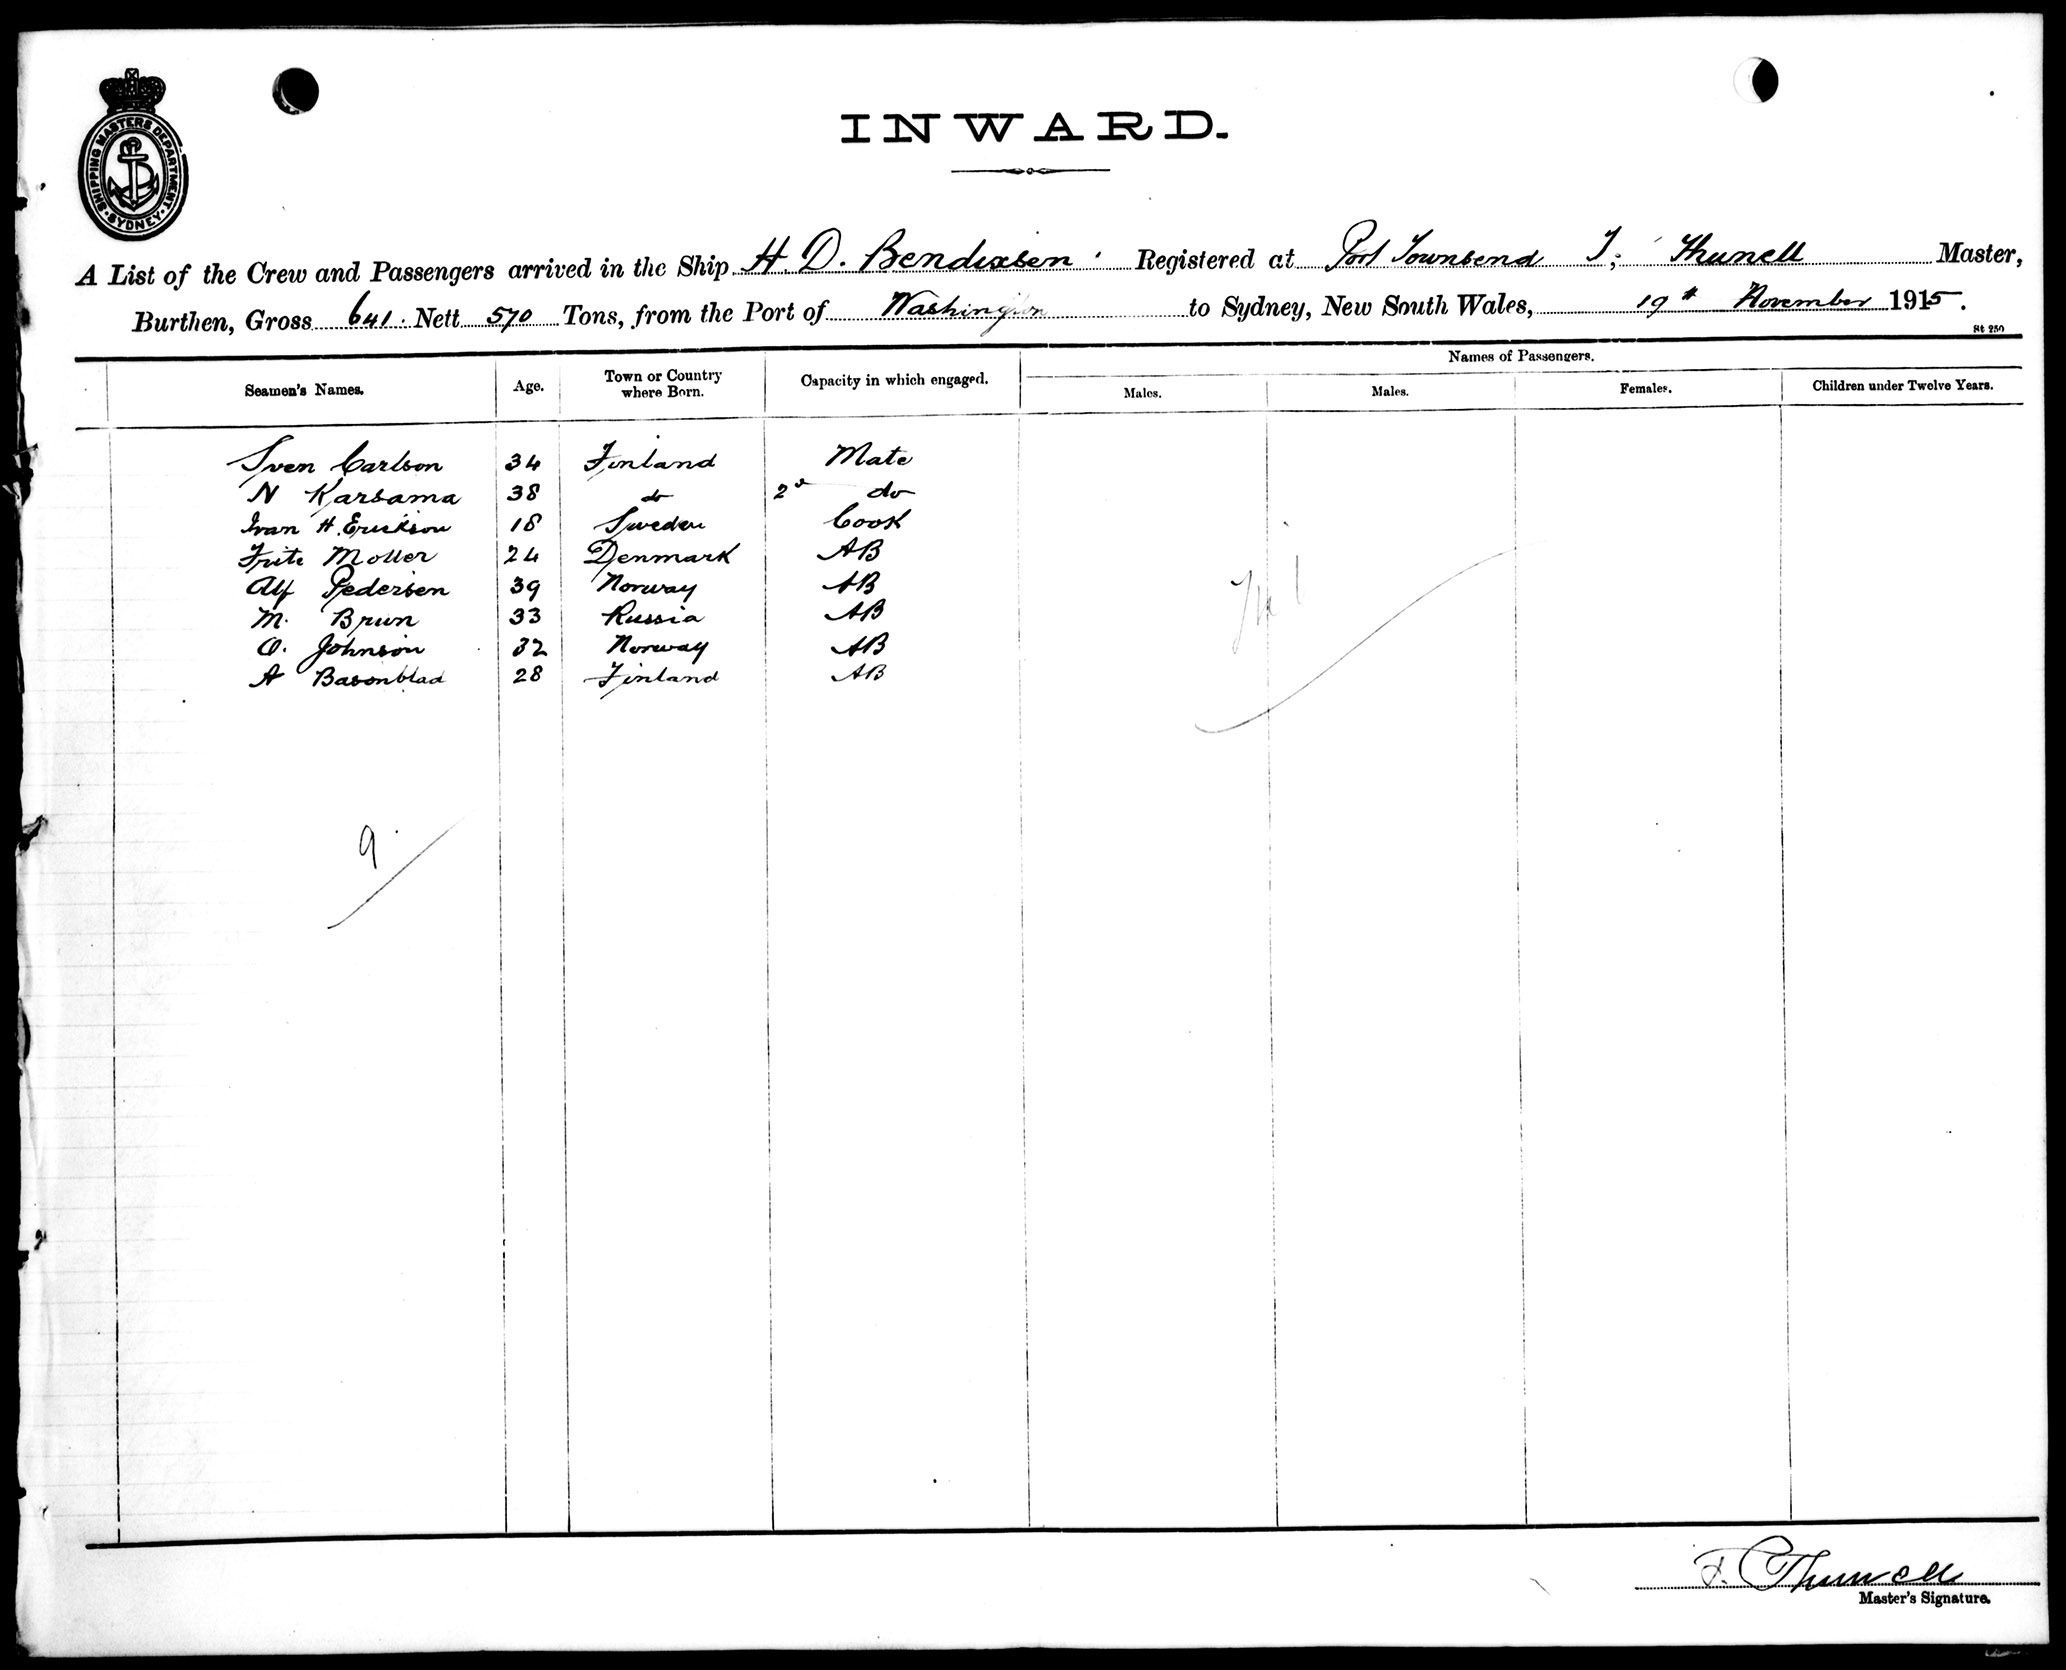 INWARD.
SHIPPING MASTERS DEPARTMENT
SYDNEY
A List of the Crew and Passengers arrived in the Ship H. D. Bendixsen. Registered at Port Townsend Thunell Master,
Burthen, Gross 641. Nett 570 Tons, from the Port of Washington to Sydney, New South Wales, 19th November 1915.
St 250
Names of Passengers.
Seamen's Names. Age. Town or Country where Born. Capacity in which engaged. Males. Males. Females. Children under Twelve Years.
Sven Carlson 34 Finland Mate
N Karsama 38 do 2d do
Ivan H. Erickson 18 Sweden Cook
Fritz Moller 24 Denmark AB
Alf Pedersen 39 Norway AB
M. Brun 33 Russia AB
O. Johnson 32 Norway AB
A Basonblad 28 Finland AB
Nil
9.
Thunell
Master's Signature.